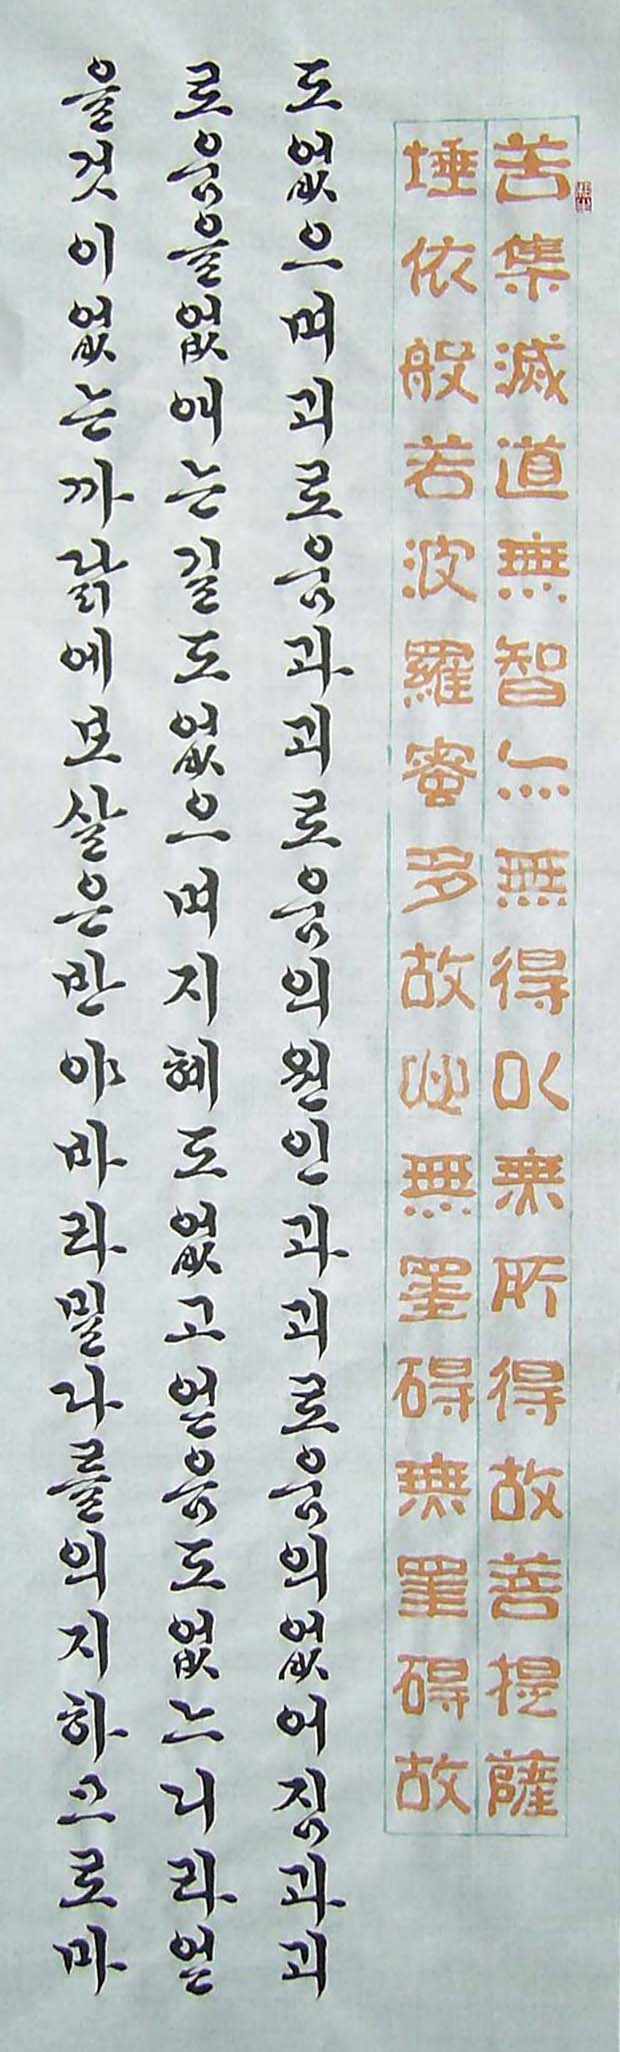 苦集滅道無智亦無得以無所得故菩提薩
埵依般若波羅蜜多故心無罣碍無罣碍故
도없으며괴로움과괴로움의원인과괴로움의없어짐과괴
로움을없애는길도없으며지혜도없고얻음도없느니라얻
을것이없는까닭에보살은반야바라밀다를의지하므로마